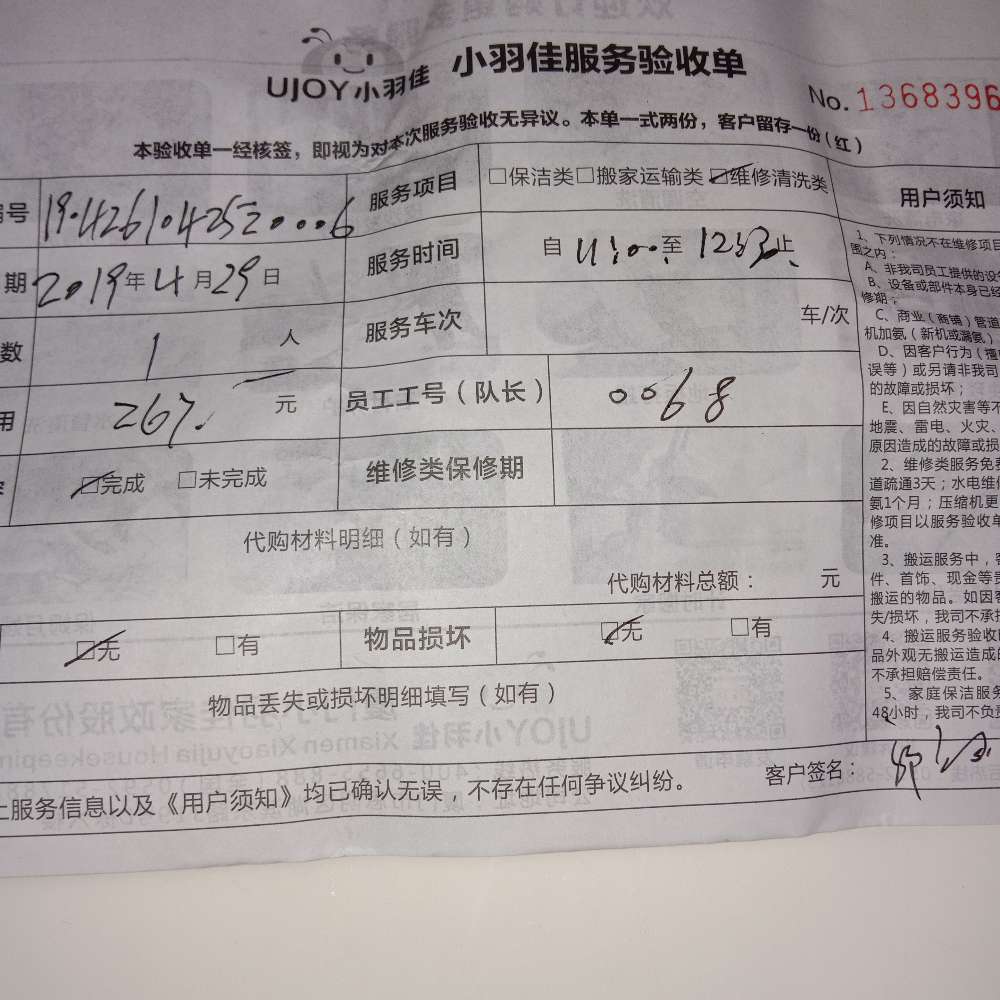 UJOY小羽佳 小羽佳服务验收单
No. 1368396
本验收单一经核签，即视为对本次服务验收无异议。本单一式两份，客户留存一份（红）
编号 服务项目 □保洁类□搬家运输类☑维修清洗类 用户须知
期 2019年4月29日 服务时间 自 11:00至 12:30止
数 1 人 服务车次 车/次
用 267. 元 员工工号（队长） 0068
☑完成 □未完成 维修类保修期
代购材料明细（如有）
代购材料总额： 元
☑无 □有 物品损坏 ☑无 □有
物品丢失或损坏明细填写（如有）
上服务信息以及《用户须知》均已确认无误，不存在任何争议纠纷。 客户签名：
1、下列情况不在维修项目
围之内：
A、非我司员工提供的设
B、设备或部件本身已经
修期；
C、商业（商铺）管道
机加氨（新机或漏氨）
D、因客户行为（撞
误等）或另请非我司
的故障或损坏；
E、因自然灾害等不
地震、雷电、火灾、
原因造成的故障或损
2、维修类服务免费
道疏通3天；水电维
氨1个月；压缩机更
修项目以服务验收单
准。
3、搬运服务中，客
件、首饰、现金等贵
搬运的物品。如因客
失/损坏，我司不承担
4、搬运服务验收
品外观无搬运造成的
不承担赔偿责任。
5、家庭保洁服务
48小时，我司不负责